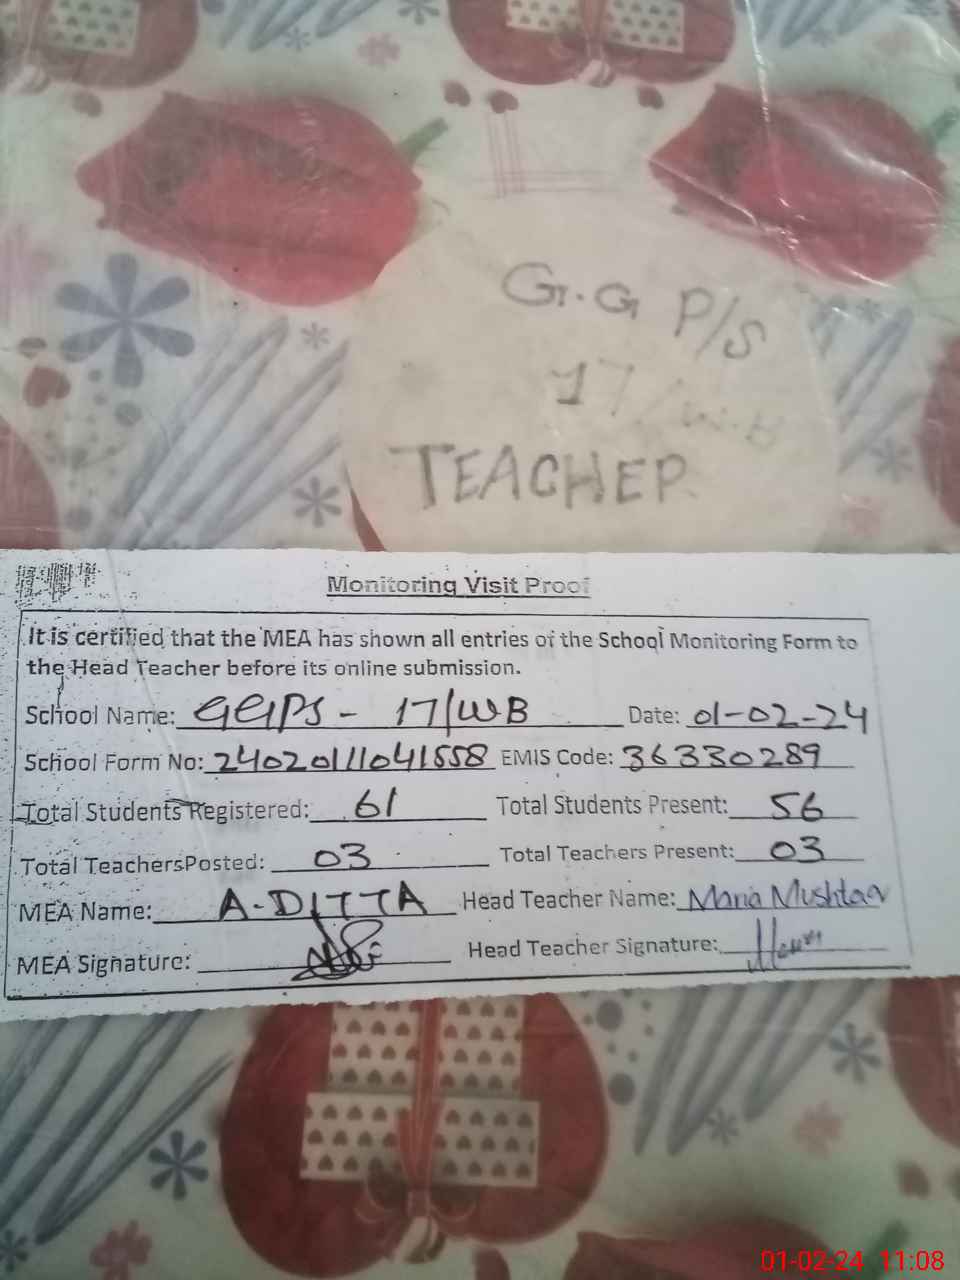 G.G P/S
17/W.B
TEACHER
Monitoring Visit Proof
It is certified that the MEA has shown all entries of the School Monitoring Form to
the Head Teacher before its online submission.
School Name: GGPS - 17/WB Date: 01-02-24
School Form No: 24020111041558 EMIS Code: 36330289
Total Students Registered: 61 Total Students Present: 56
Total TeachersPosted: 03 Total Teachers Present: 03
MEA Name: A-DITTA Head Teacher Name: Maria Mushtaq
MEA Signature: Head Teacher Signature:
01-02-24 11:08